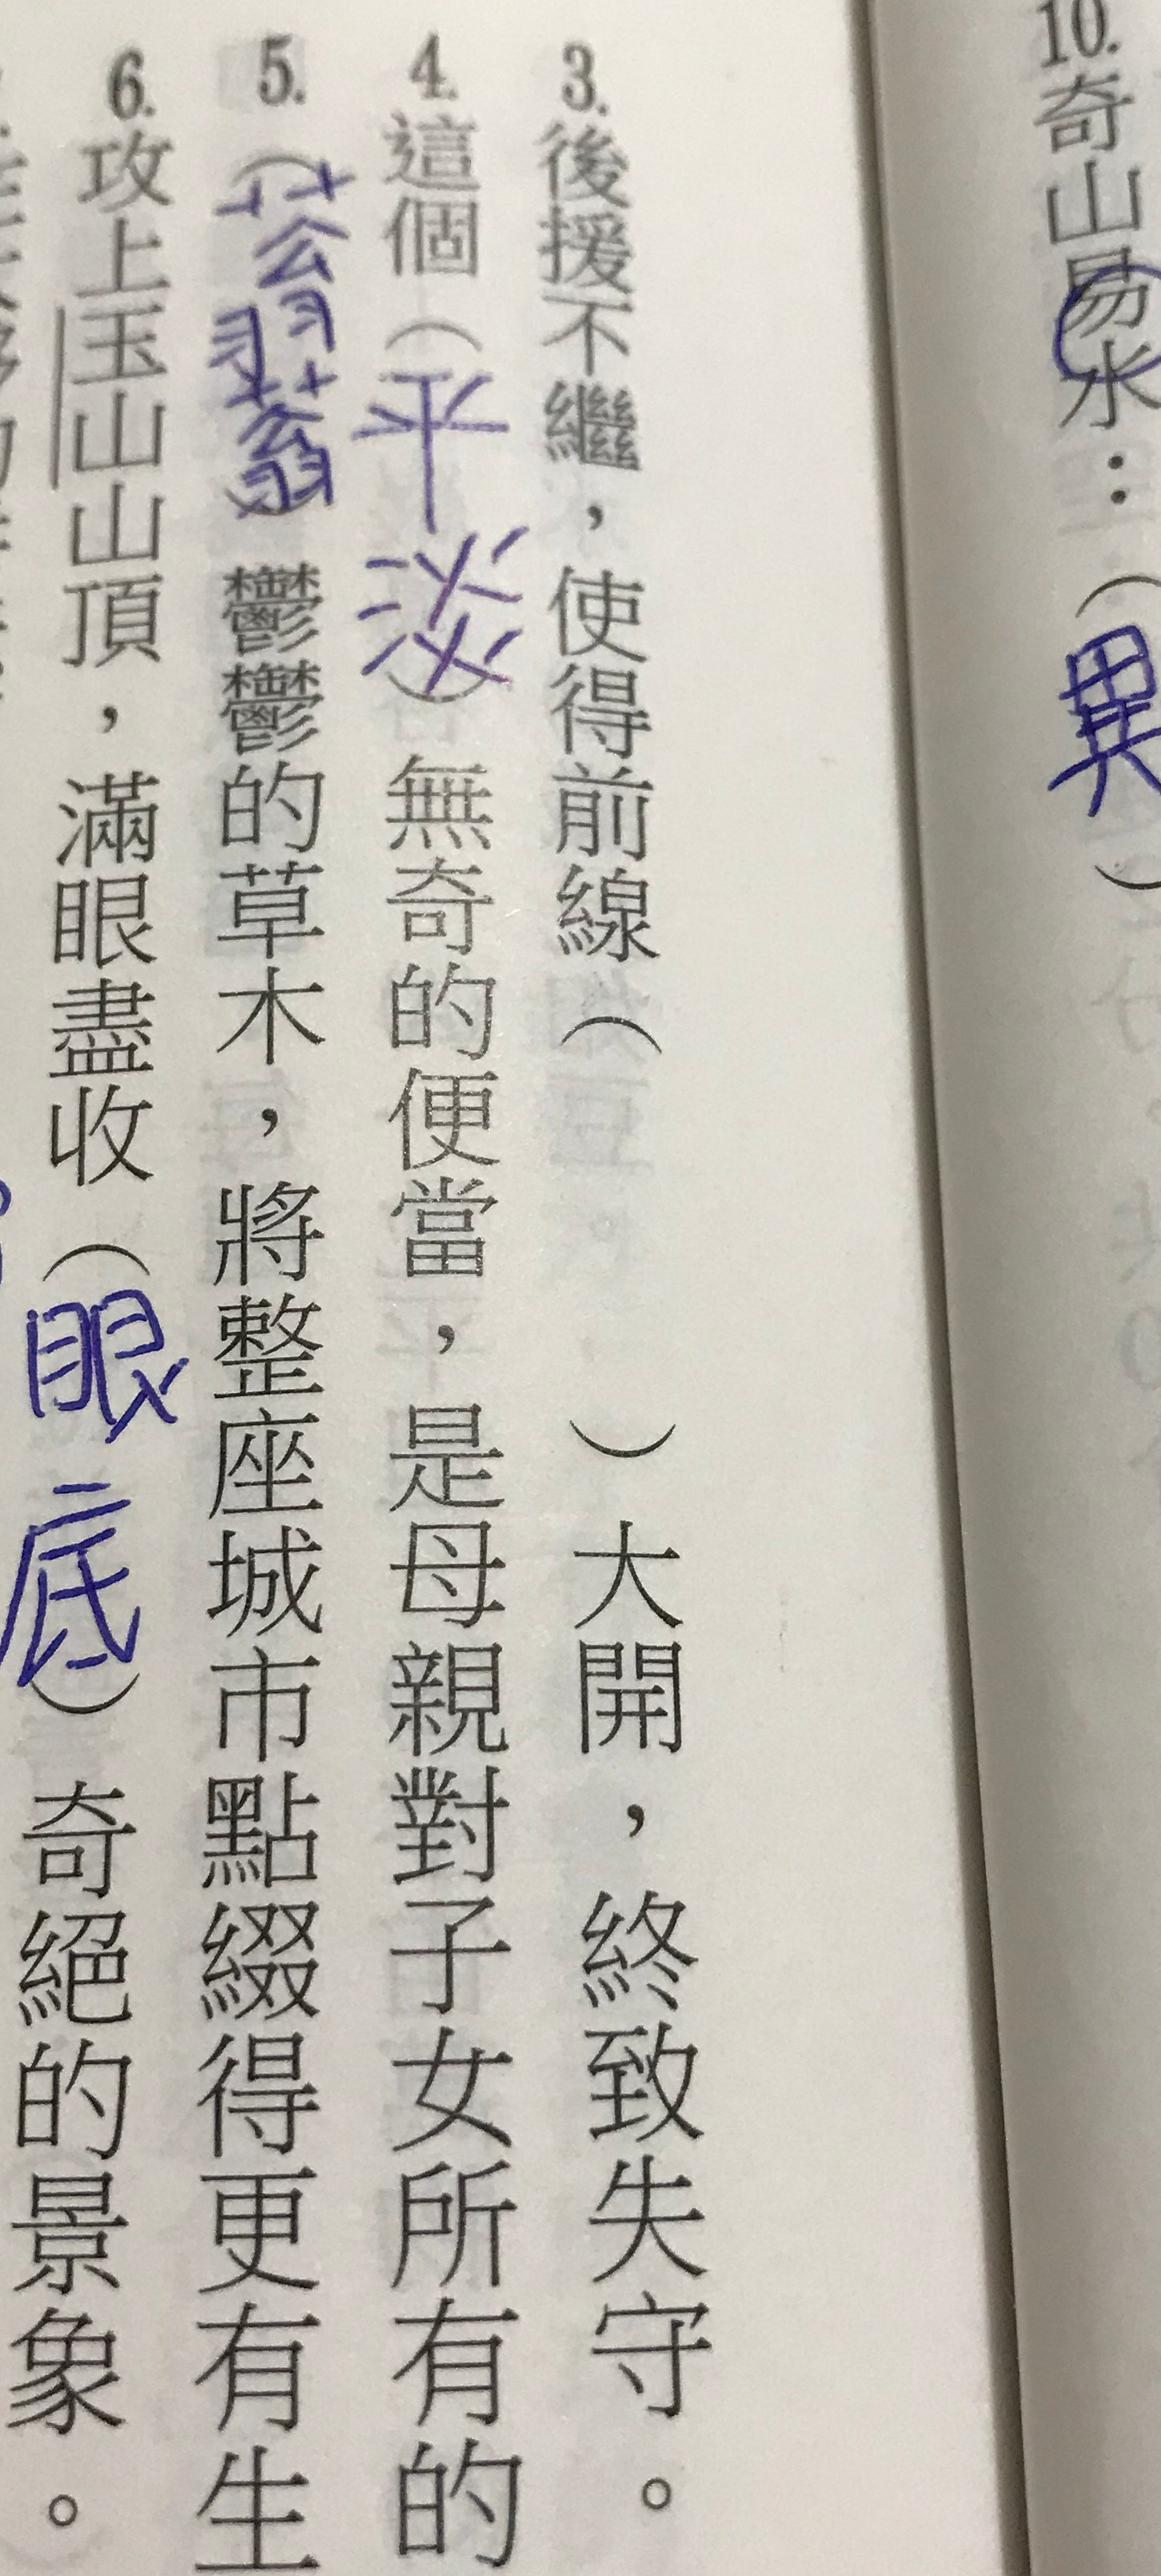 10.奇山易水：（異）
3.後援不繼，使得前線（　　）大開，終致失守。
4.這個（平淡）無奇的便當，是母親對子女所有的
5.（蓊蓊）鬱鬱的草木，將整座城市點綴得更有生
6.攻上玉山山頂，滿眼盡收（眼底）奇絕的景象。